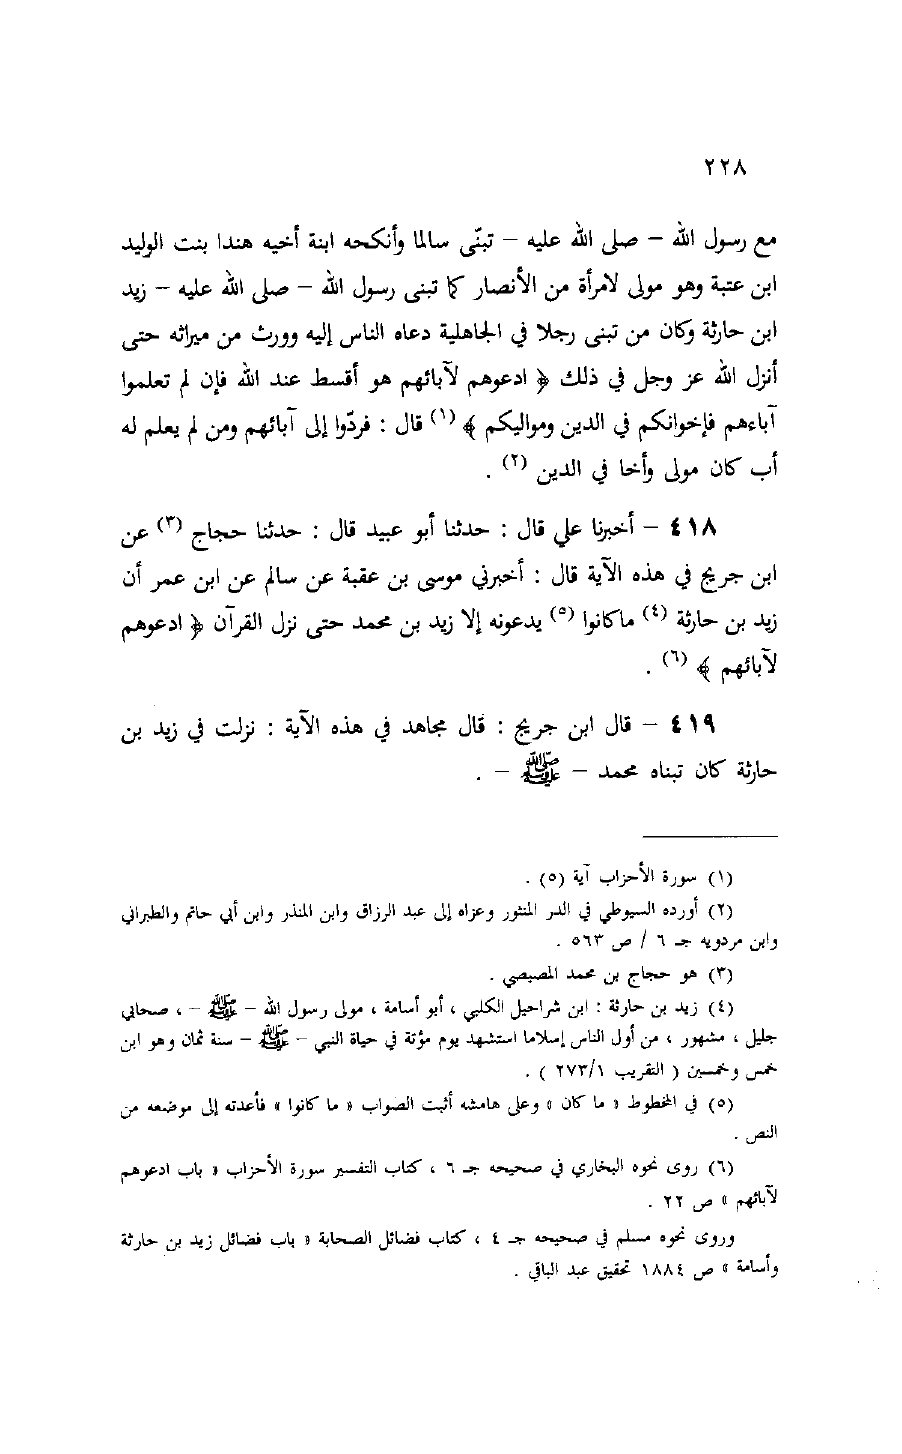 ٢٢٨
مع رسول الله – صلى الله عليه – تبنّى سالما وأنكحه ابنة أخيه هندا بنت الوليد
ابن عتبة وهو مولى لامرأة من الأنصار كما تبنى رسول الله – صلى الله عليه – زيد
ابن حارثة وكان من تبنى رجلا في الجاهلية دعاه الناس إليه وورث من ميراثه حتى
أنزل الله عز وجل في ذلك ﴿ ادعوهم لآبائهم هو أقسط عند الله فإن لم تعلموا
آباءهم فإخوانكم في الدين ومواليكم ﴾ (١) قال : فردّوا إلى آبائهم ومن لم يعلم له
أب كان مولى وأخا في الدين (٢) .
٤١٨ – أخبرنا علي قال : حدثنا أبو عبيد قال : حدثنا حجاج (٣) عن
ابن جريج في هذه الآية قال : أخبرني موسى بن عقبة عن سالم عن ابن عمر أن
زيد بن حارثة (٤) ماكانوا (٥) يدعونه إلا زيد بن محمد حتى نزل القرآن ﴿ ادعوهم
لآبائهم ﴾ (٦) .
٤١٩ – قال ابن جريج : قال مجاهد في هذه الآية : نزلت في زيد بن
حارثة كان تبناه محمد – ﷺ – .
(١) سورة الأحزاب آية (٥) .
(٢) أورده السيوطي في الدر المنثور وعزاه إلى عبد الرزاق وابن المنذر وابن أبي حاتم والطبراني
وابن مردويه جـ ٦ / ص ٥٦٣ .
(٣) هو حجاج بن محمد المصيصي .
(٤) زيد بن حارثة : ابن شراحيل الكلبي ، أبو أسامة ، مولى رسول الله – ﷺ – ، صحابي
جليل ، مشهور ، من أول الناس إسلاما استشهد يوم مؤتة في حياة النبي – ﷺ – سنة ثمان وهو ابن
خمس وخمسين ( التقريب ٢٧٣/١ ) .
(٥) في المخطوط « ما كان » وعلى هامشه أثبت الصواب « ما كانوا » فأعدته إلى موضعه من
النص .
(٦) روى نحوه البخاري في صحيحه جـ ٦ ، كتاب التفسير سورة الأحزاب « باب ادعوهم
لآبائهم » ص ٢٢ .
وروى نحوه مسلم في صحيحه جـ ٤ ، كتاب فضائل الصحابة « باب فضائل زيد بن حارثة
وأسامة » ص ١٨٨٤ تحقيق عبد الباقي .